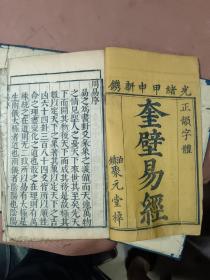 光緒甲申新鐫
正韻字體
奎壁易經
聚元堂梓
周易序
易之爲書卦爻彖象之義備而天地萬物
之情見聖人之憂天下來世其至矣先天
下而開其物後天下而成其務是故極其
數以定天下之象著其象以定天下之吉
凶六十四卦三百八十四爻皆所以順性
命之理盡變化之道也散之在理則有萬
殊統之在道則无二致所以易有太極是
生兩儀太極者道也兩儀者陰陽也陰陽